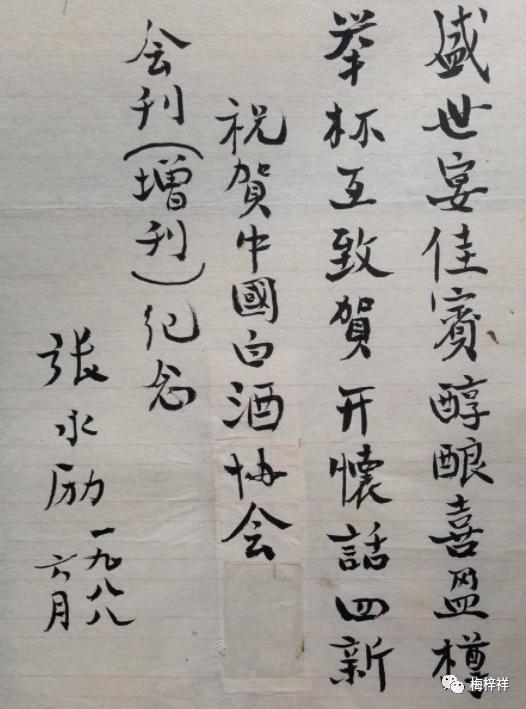 盛世宴佳賓醇酿喜盈樽
举杯互致賀开懷話四新
祝賀中國白酒协会
会刊(增刊)纪念
張水励
一九八八
六月
梅梓祥